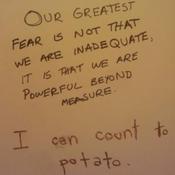 OUR GREATEST
FEAR IS NOT THAT
WE ARE INADEQUATE,
IT IS THAT WE ARE
POWERFUL BEYOND
MEASURE.
I can count to
potato.